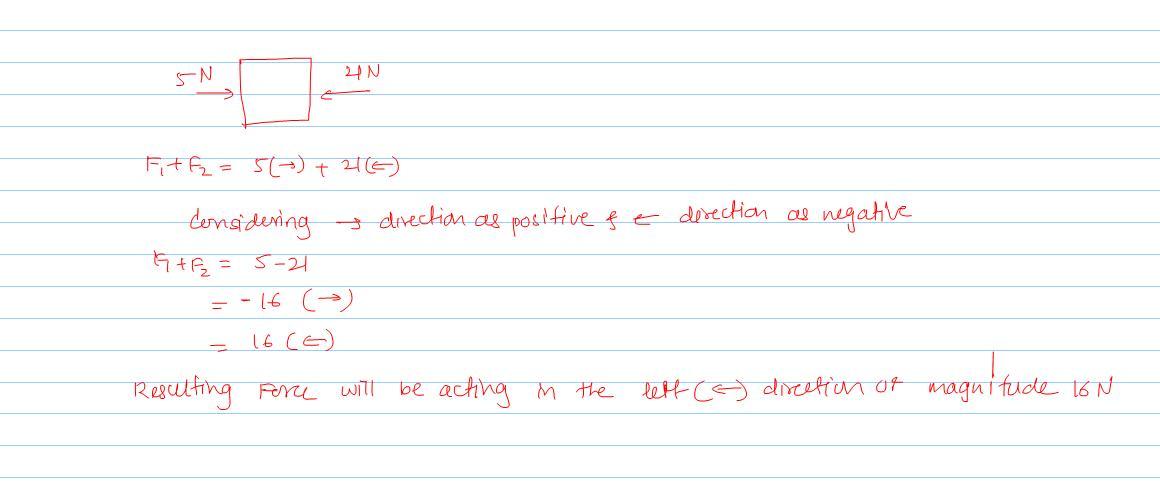 5 N 21 N
F₁ + F₂ = 5(→) + 21(←)
Considering → direction as positive & ← direction as negative
F₁ + F₂ = 5 - 21
= -16 (→)
= 16 (←)
Resulting Force will be acting in the left (←) direction of magnitude 16 N